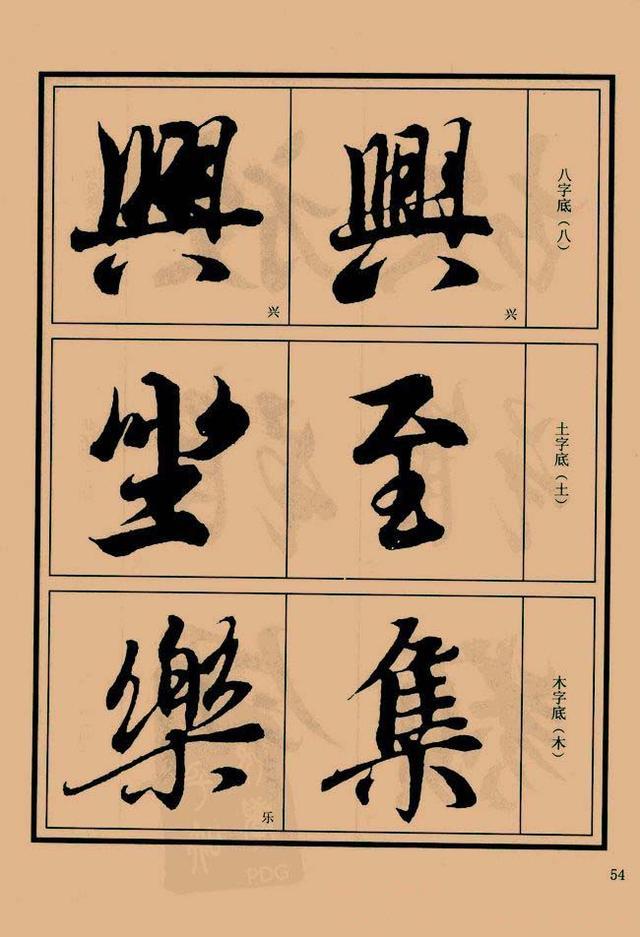 八字底（八）
興
兴
興
兴
土字底（土）
至
坐
木字底（木）
集
樂
乐
54
PDG